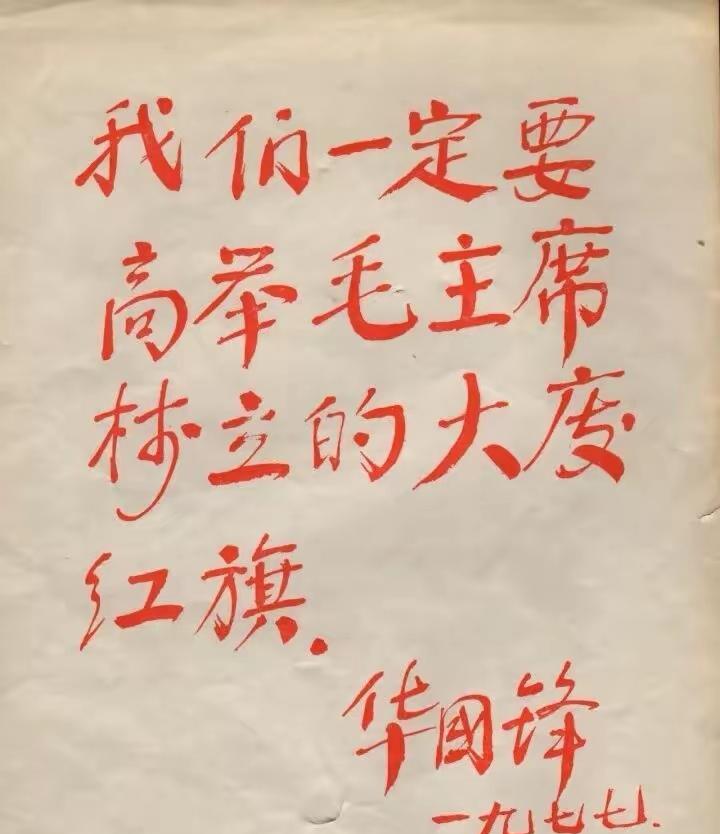 我们一定要
高举毛主席
树立的大庆
红旗.
华国锋
一九七七.